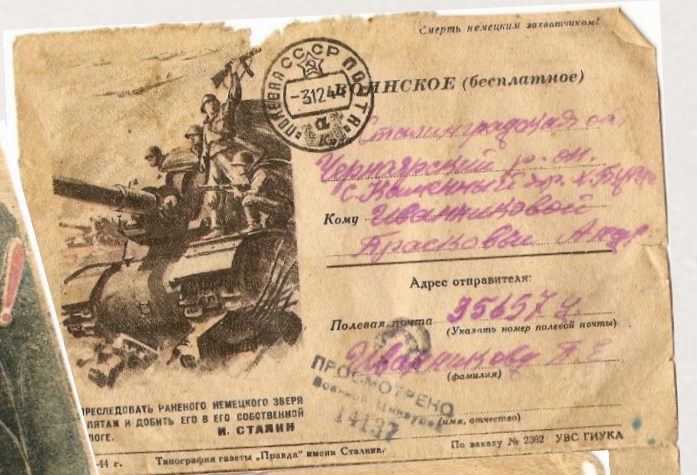 Смерть немецким захватчикам!
ПОЛЕВАЯ ПОЧТА
СССР
-31244
а
ВОИНСКОЕ (бесплатное)
Куда
Сталинградская об
Черноярский р-он.
с. Каменный Яр х.
Кому Иванниковой
Прасковьи
Адрес отправителя:
Полевая почта 35657
(Указать номер полевой почты)
Иванникову
(фамилия)
ПРОСМОТРЕНО
Военной Цензурой
14137
(имя, отчество)
ПРЕСЛЕДОВАТЬ РАНЕНОГО НЕМЕЦКОГО ЗВЕРЯ
ПЯТАМ И ДОБИТЬ ЕГО В ЕГО СОБСТВЕННОЙ
ЛОГЕ.
И. СТАЛИН
-44 г.
Типография газеты „Правда" имени Сталина.
По заказу № 2362 УВС ГИУКА